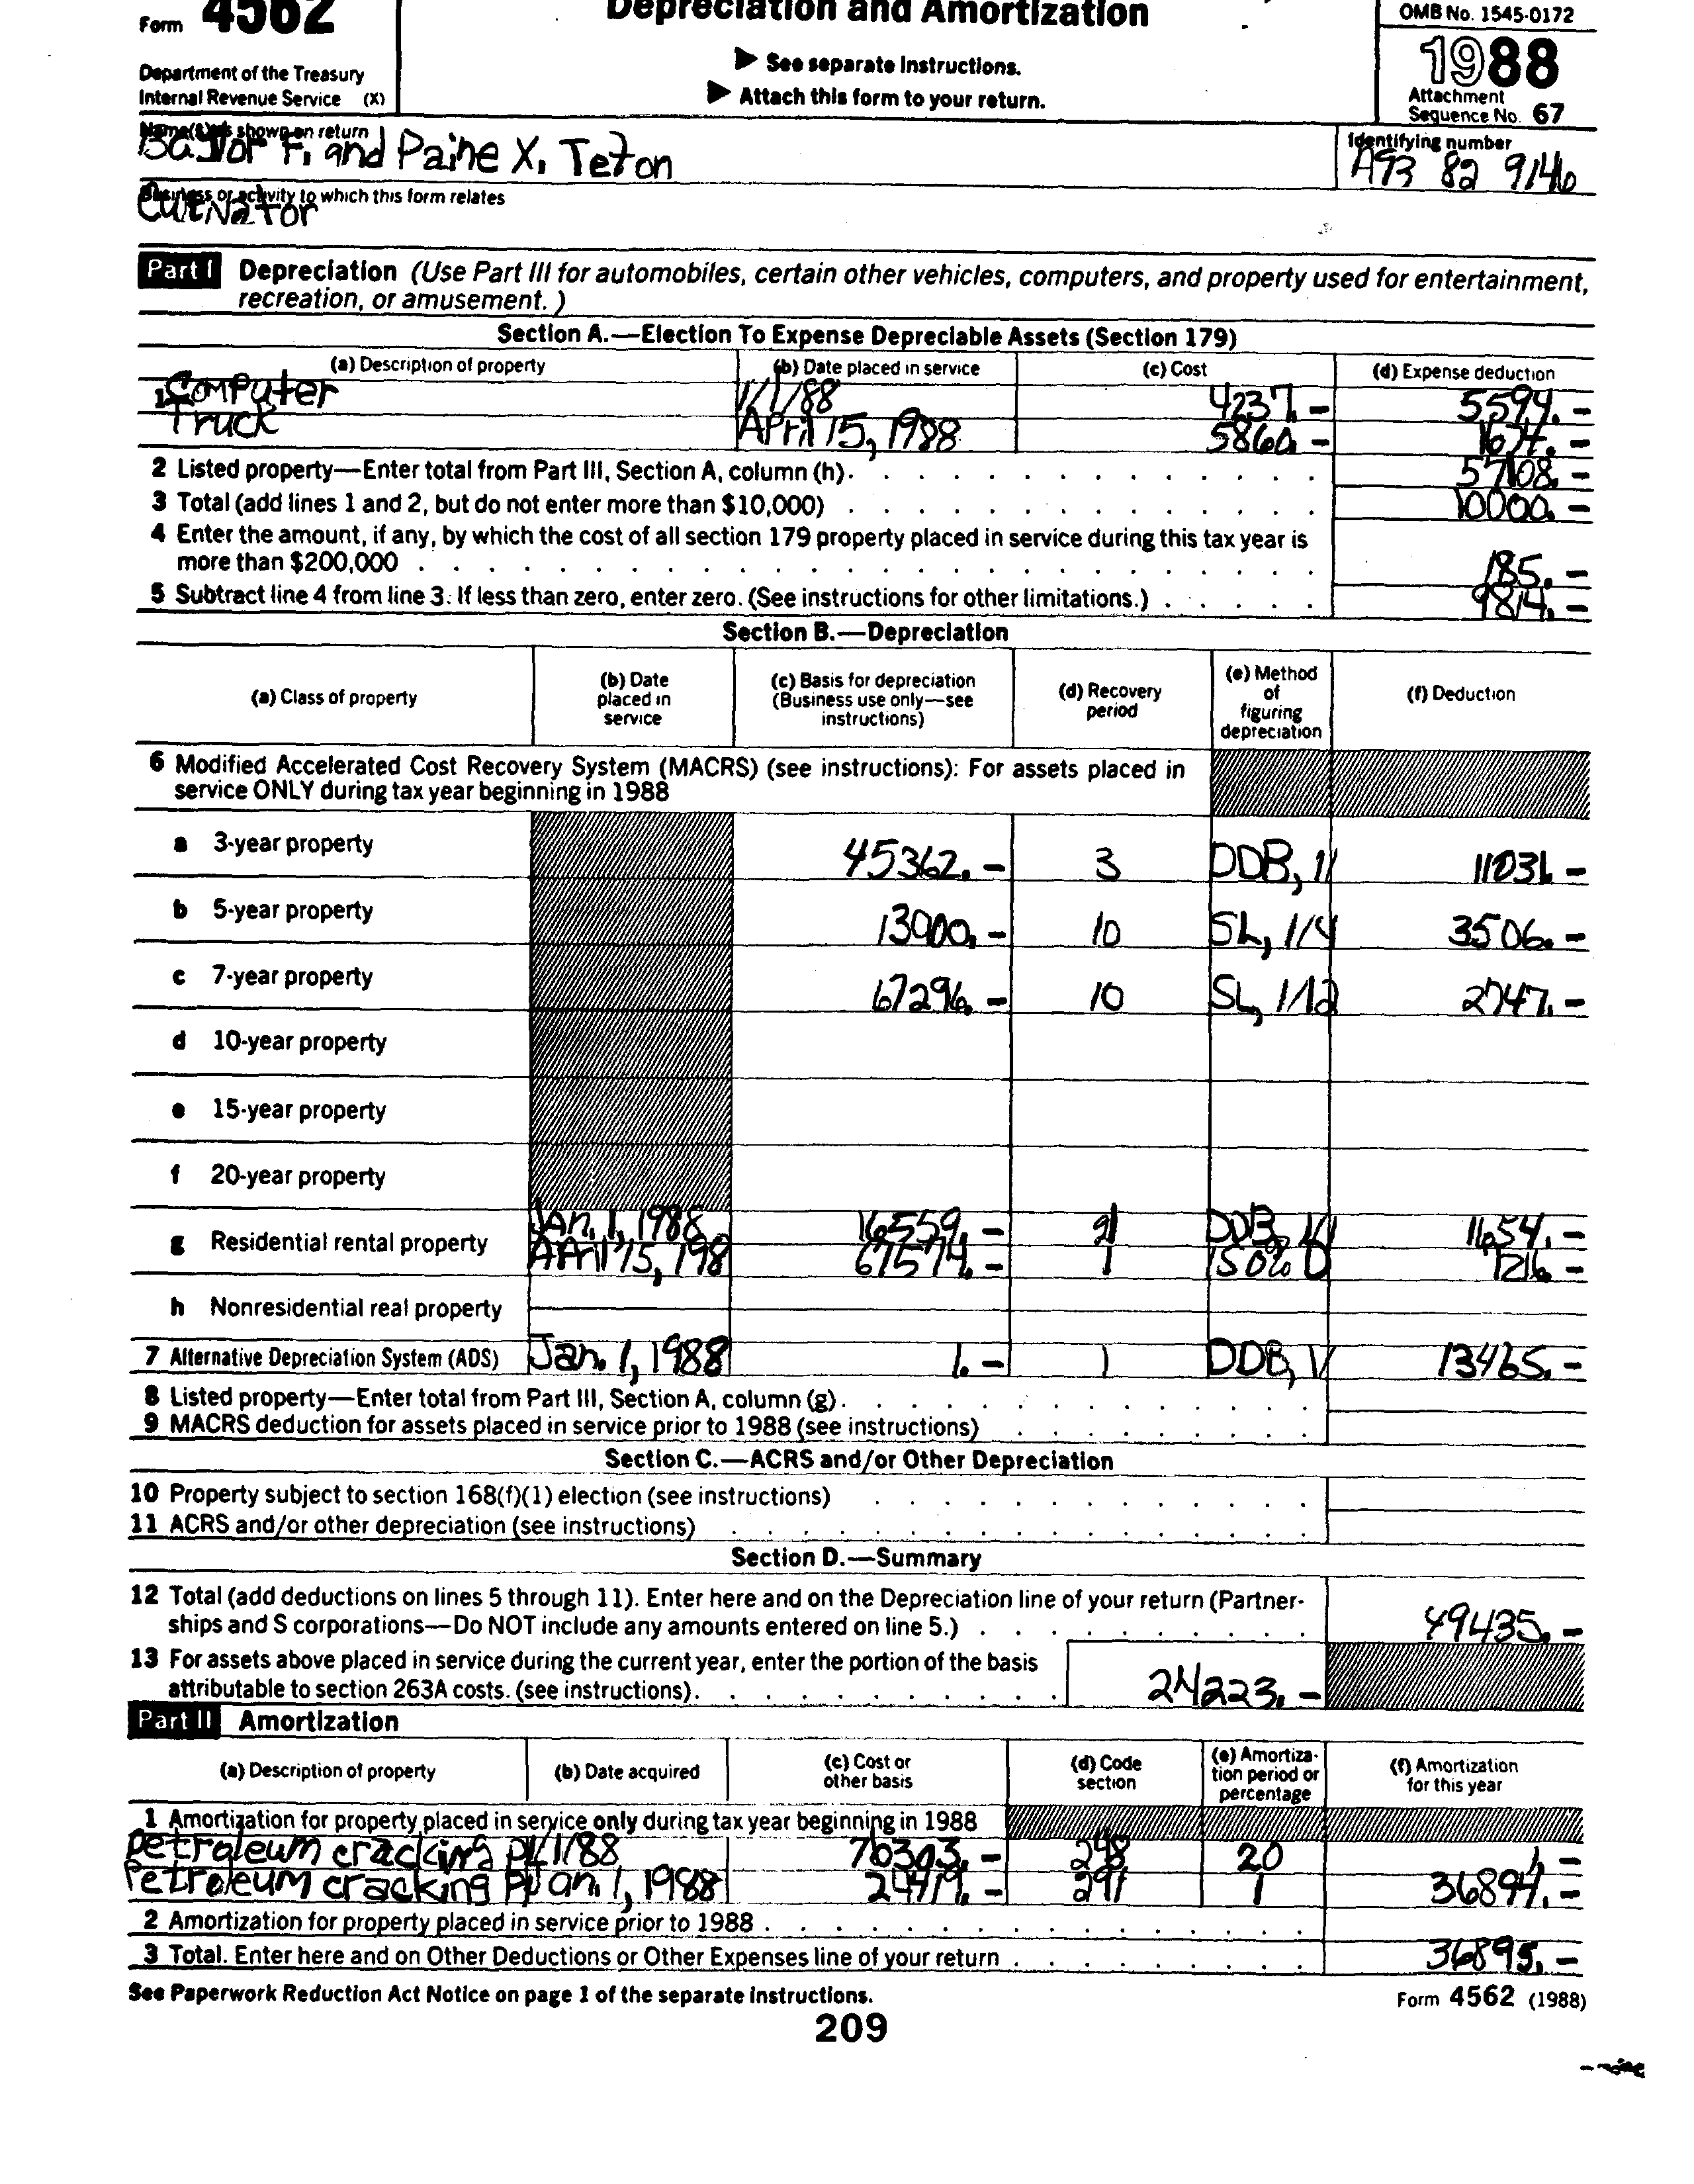 Form 4562
Depreciation and Amortization
OMB No. 1545-0172
1988
Department of the Treasury
Internal Revenue Service (X)
▶ See separate Instructions.
▶ Attach this form to your return.
Attachment
Sequence No. 67
Name(s) as shown on return
F. and Paine X. Teton
Identifying number
A93 82 9146
Business or activity to which this form relates
Cultivator
Part I Depreciation (Use Part III for automobiles, certain other vehicles, computers, and property used for entertainment,
recreation, or amusement.)
Section A.—Election To Expense Depreciable Assets (Section 179)
(a) Description of property (b) Date placed in service (c) Cost (d) Expense deduction
1 Computer 1/1/88 4237.- 5594.-
Truck April 15, 1988 5860.- 1674.-
2 Listed property—Enter total from Part III, Section A, column (h). 57108.-
3 Total (add lines 1 and 2, but do not enter more than $10,000) 10000.-
4 Enter the amount, if any, by which the cost of all section 179 property placed in service during this tax year is
more than $200,000 185.-
5 Subtract line 4 from line 3. If less than zero, enter zero. (See instructions for other limitations.) 9814.-
Section B.—Depreciation
(a) Class of property (b) Date placed in service (c) Basis for depreciation (Business use only—see instructions) (d) Recovery period (e) Method of figuring depreciation (f) Deduction
6 Modified Accelerated Cost Recovery System (MACRS) (see instructions): For assets placed in
service ONLY during tax year beginning in 1988
a 3-year property 45362.- 3 DDB, 11031.-
b 5-year property 13900.- 10 SL, 1/4 3506.-
c 7-year property 67296.- 10 SL, 1/12 2747.-
d 10-year property
e 15-year property
f 20-year property
Jan. 1, 1988 16559.- DDB, 1654.-
g Residential rental property April 15, 198 67574.- 1 150% D 1216.-
h Nonresidential real property
7 Alternative Depreciation System (ADS) Jan. 1, 1988 1.- 1 DDB, 13465.-
8 Listed property—Enter total from Part III, Section A, column (g).
9 MACRS deduction for assets placed in service prior to 1988 (see instructions)
Section C.—ACRS and/or Other Depreciation
10 Property subject to section 168(f)(1) election (see instructions)
11 ACRS and/or other depreciation (see instructions)
Section D.—Summary
12 Total (add deductions on lines 5 through 11). Enter here and on the Depreciation line of your return (Partner-
ships and S corporations—Do NOT include any amounts entered on line 5.) 49435.-
13 For assets above placed in service during the current year, enter the portion of the basis
attributable to section 263A costs. (see instructions). 24223.-
Part II Amortization
(a) Description of property (b) Date acquired (c) Cost or other basis (d) Code section (e) Amortization period or percentage (f) Amortization for this year
1 Amortization for property placed in service only during tax year beginning in 1988
petroleum cracking pl 1/1/88 76303.- 248 20 1.-
Petroleum cracking Jan. 1, 1988 24419.- 291 1 36894.-
2 Amortization for property placed in service prior to 1988
3 Total. Enter here and on Other Deductions or Other Expenses line of your return 36895.-
See Paperwork Reduction Act Notice on page 1 of the separate instructions.
Form 4562 (1988)
209